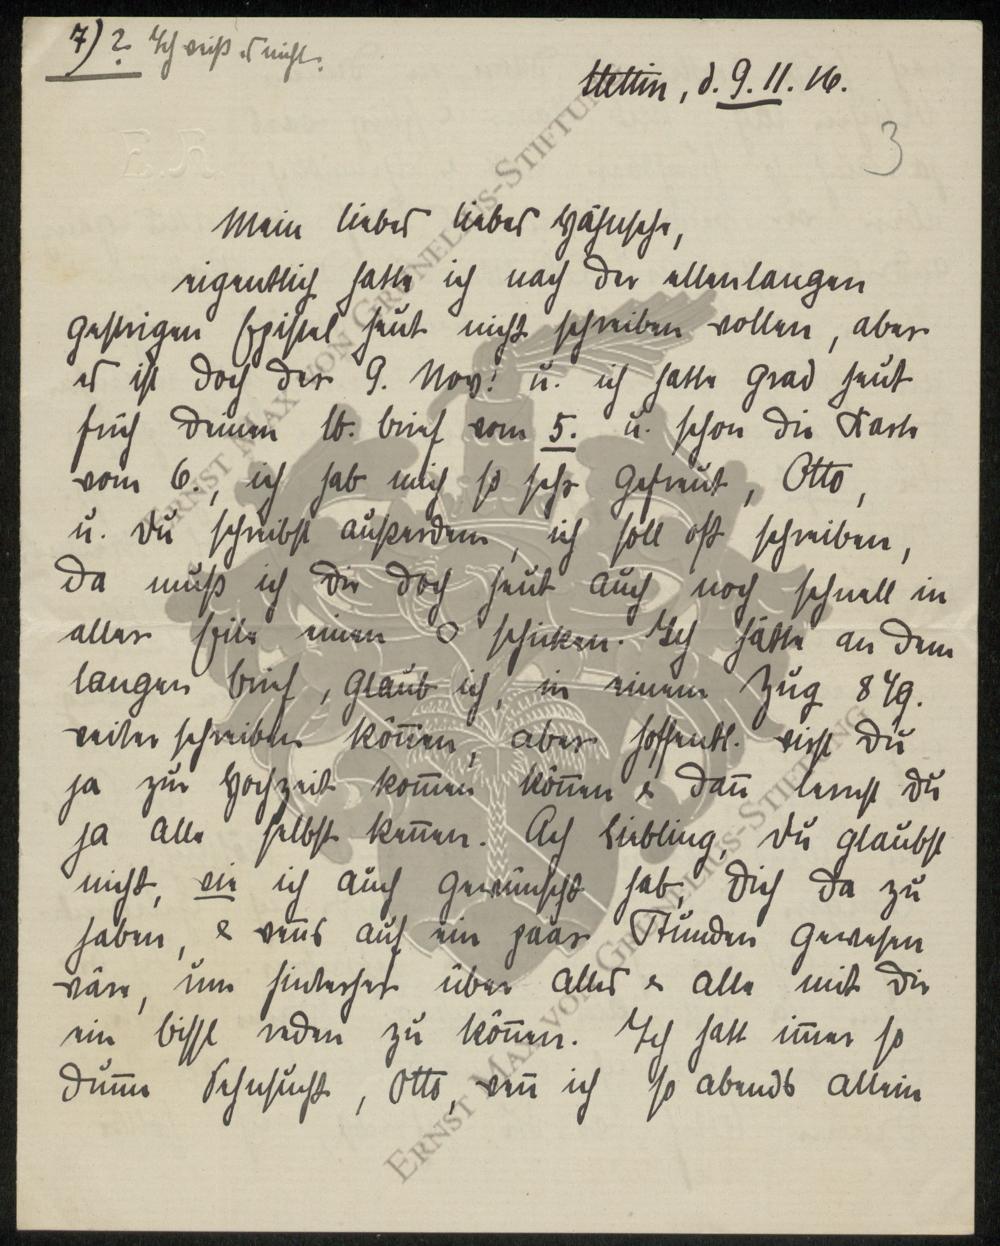 7) ? Ich weiß es nicht.
Stettin, d. 9. 11. 16.
3
E.R.
Mein liebes liebes Hähnsche,
eigentlich hatte ich nach der ellenlangen
gestrigen Epistel heut nicht schreiben wollen, aber
es ist doch der 9. Nov! u. ich hatte grad heut
früh deinen lb. brief vom 5. u. schon die Karte
vom 6., ich hab mich so sehr gefreut, Otto,
u. du schreibst außerdem, ich soll oft schreiben,
da muß ich dir doch heut auch noch schnell in
aller Eile einen O schicken. Ich hätte an dem
langen brief, glaub ich, in einem Zug 8 Tg.
weiter schreiben kön̄en, aber hoffentl. wirst du
ja zur Hochzeit kom̄en kön̄en & dan̄ lernst du
ja alle selbst ken̄en. Ach Liebling, du glaubst
nicht, wie ich auch gewünscht hab, dich da zu
haben, & wen̄s auf ein paar Stunden gewesen
wäre, um hinterher über alles & alle mit dir
ein bissl reden zu kön̄en. Ich hatt im̄er so
dum̄e Sehnsucht, Otto, wen̄ ich so abends allein
ERNST MAX VON GRUNELIUS-STIFTUNG
ERNST MAX VON GRUNELIUS-STIFTUNG